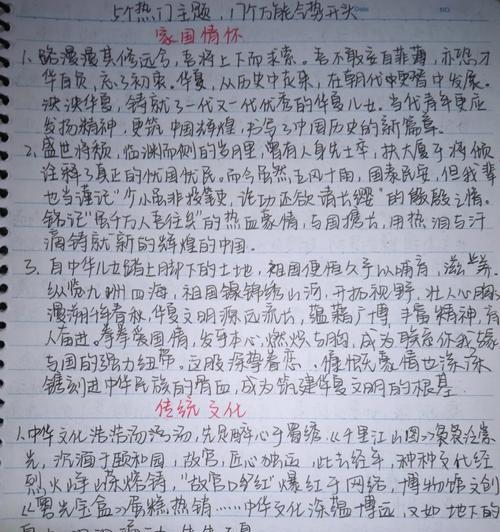 5个热门主题，17个万能金句开头
家国情怀
1、路漫漫其修远兮，吾将上下而求索。吾不敢妄自菲薄，亦恐才
华自负，忘了初衷。华夏，从历史中走来，在朝代中更替中发展。
泱泱华夏，铸就了一代又一代优秀的华夏儿女。当代青年更应
发扬精神，更筑中国辉煌，书写了中国历史的新篇章。
2、盛世将倾，临渊而侧的岁月里，曾有人身先士卒，扶大厦于将倾
注释了真正的忧国忧民。而今虽然五风十雨，国泰民安，但我辈
也当谨记"少小虽非投笔吏，论功还欲请长缨"的
铭记"虽千万人吾往矣"的热血豪情，与国携手，用热泪与汗
滴铸就新的辉煌的中国。
3、自中华儿女踏上脚下的土地，祖国便恒久予以哺育，滋
纵览九州四海，祖国锦绣山河，开拓视野，壮人心胸
漫溯千年春秋，华夏文明源远流长，蕴藉广博，丰富精神，
人奋进。拳拳爱国情，发乎本心，燃烧与胸，成为联系你我
与国的强力纽带。这股深挚眷恋，慷慨豪情也深深
镌刻进中华民族的骨血，成为筑建华夏文明的根基
传统文化
1、中华文化浩浩汤汤，先是醉心于蜀绣，《千里江山图》
光，沉湎于颐和园，故宫，匠心独运，此去经年，种种文化经
烈火烨烁烧铸，"故宫口红"爆红于网络，博物馆文创
蛋糕热销……中华文化深蕴博远，又如地下的